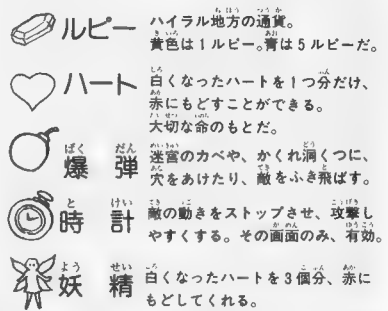 ルピー
ハイラル地方の通貨。
黄色は1ルピー。青は5ルピーだ。
ハート
白くなったハートを1つ分だけ、
赤にもどすことができる。
大切な命のもとだ。
爆弾
迷宮のカベや、かくれ洞くつに、
穴をあけたり、敵をふき飛ばす。
時計
敵の動きをストップさせ、攻撃し
やすくする。その画面のみ、有効。
妖精
白くなったハートを3個分、赤に
もどしてくれる。